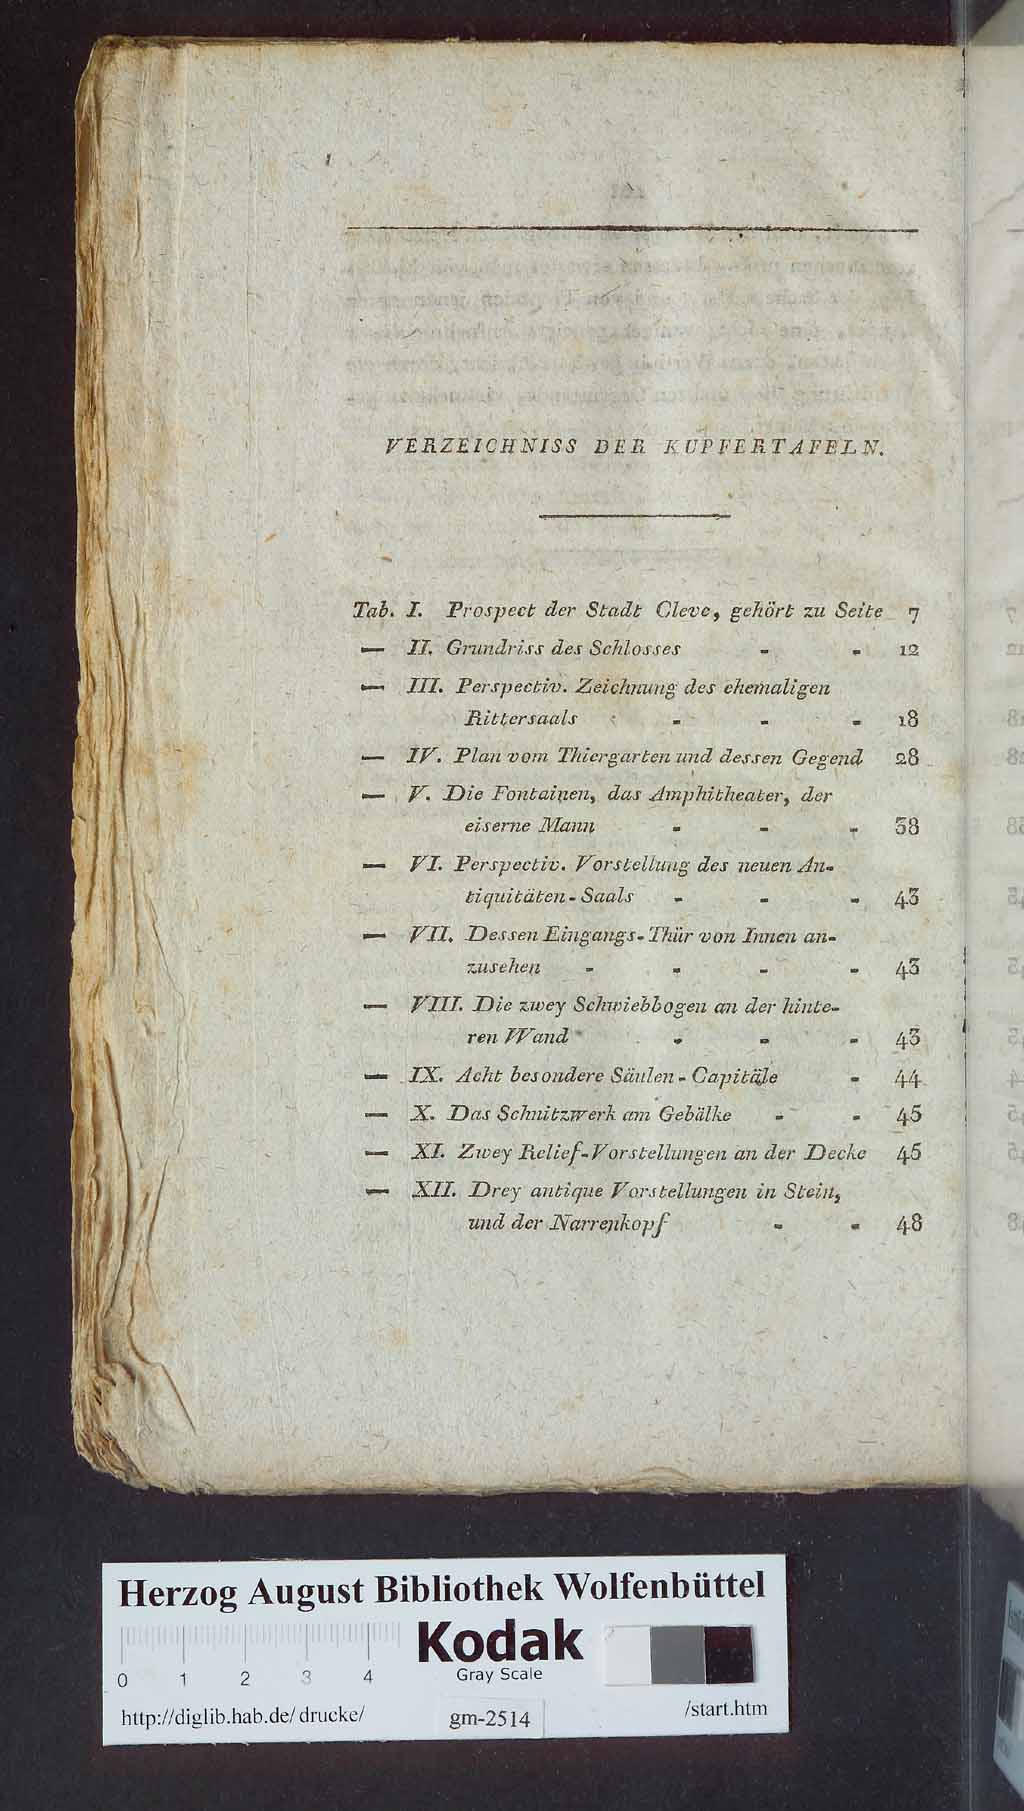 VERZEICHNISS DER KUPFERTAFELN.
Tab. I. Prospect der Stadt Cleve, gehört zu Seite 7
— II. Grundriss des Schlosses - - 12
— III. Perspectiv. Zeichnung des ehemaligen
Rittersaals - - - 18
— IV. Plan vom Thiergarten und dessen Gegend 28
— V. Die Fontainen, das Amphitheater, der
eiserne Mann - - - 38
— VI. Perspectiv. Vorstellung des neuen An-
tiquitäten-Saals - - - 43
— VII. Dessen Eingangs-Thür von Innen an-
zusehen - - - - 43
— VIII. Die zwey Schwiebbogen an der hinte-
ren Wand - - - 43
— IX. Acht besondere Säulen-Capitäle - 44
— X. Das Schnitzwerk am Gebälke - - 45
— XI. Zwey Relief-Vorstellungen an der Decke 45
— XII. Drey antique Vorstellungen in Stein,
und der Narrenkopf - - 48
Herzog August Bibliothek Wolfenbüttel
Kodak
Gray Scale
0 1 2 3 4
http://diglib.hab.de/drucke/ gm-2514 /start.htm